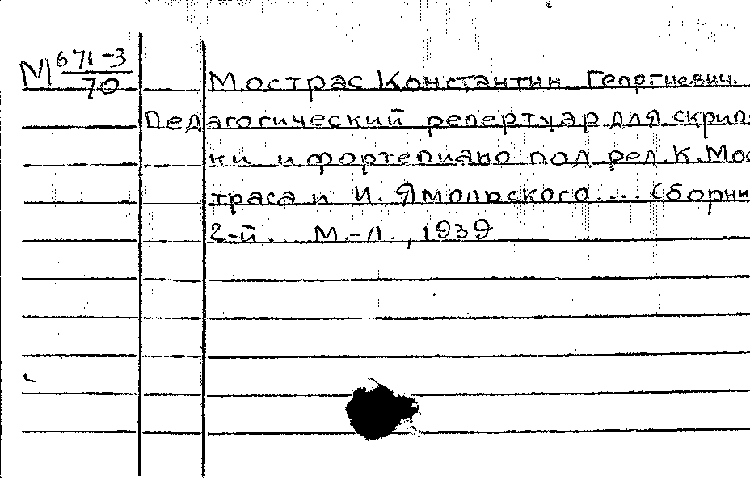 М 671-3/70
Мострас Константин Георгиевич.
Педагогический репертуар для скрип-
ки и фортепиано под ред. К. Мос
траса и И. Ямпольского... Сборни
2-й... М.-Л., 1939